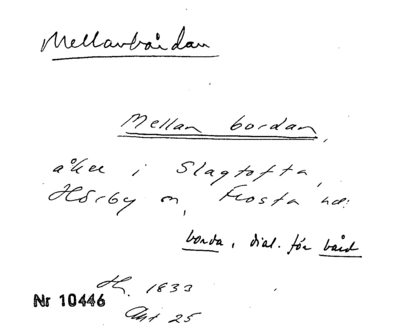 Mellanbårdan
Mellan bordan,
åker i Slagtofta,
Hörby sn, Frosta hd.
borda, dial. för bård
H. 1833
Nr 10446
Akt 25